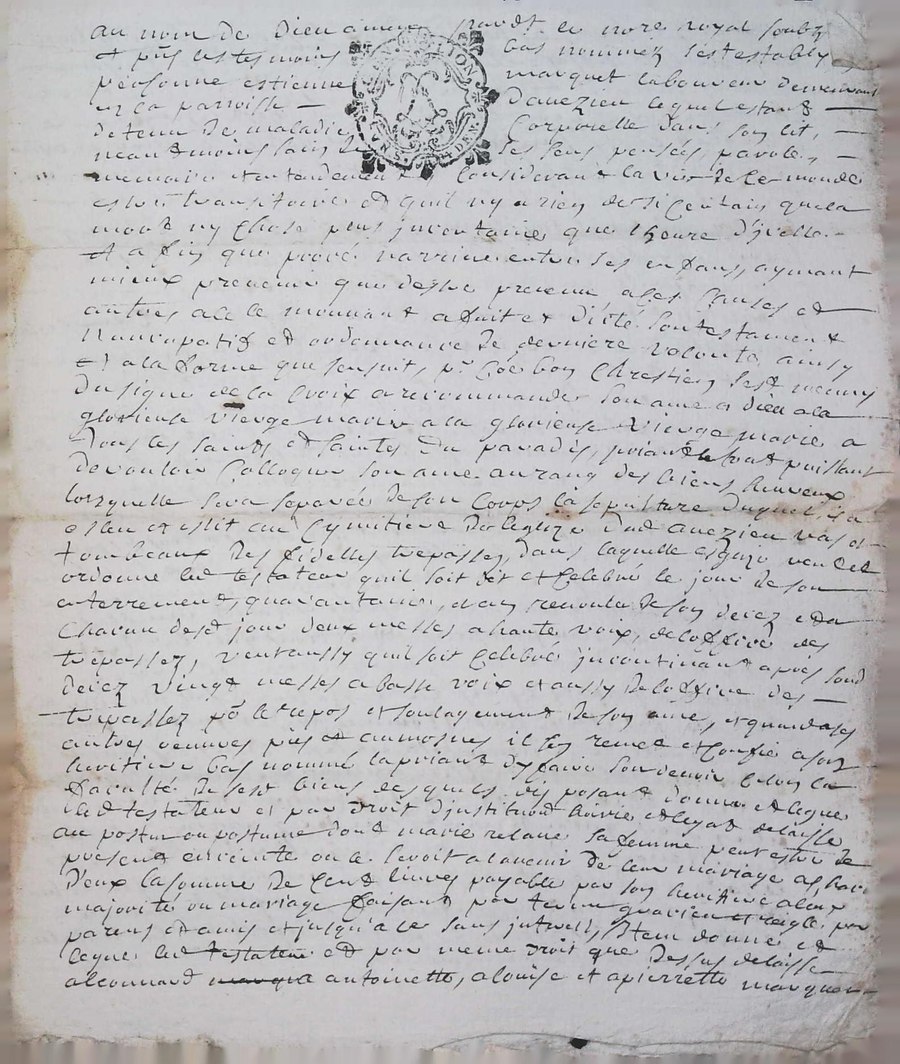 au nom de Dieu amen pardt. le nore royal soubz
et pñs les tesmoins bas nommez s'est estably
personne estienne marquet laboureur demeurant
en la parroisse d'avezieu lequel estant
detenu de maladie corporelle dans son lit,
neantmoins sain de ses sens pensées, parole,
memoire et entendement considerant la vie de ce monde
estre transitoire et quil ny a rien de si certain que la
mort ny chose plus incertaine que l'heure d'jcelle
et afin que proces narrive entre ses enfans, aymant
mieux prevenir que destre prevenu a ces causes et
autres a ce le mouvant a fait et dicté son testament
nuncupatif et ordonnance de derniere volonté ainsy
et a la forme que sensuit, pr. coe bon chrestien sest muny
du signe de la croix a recommandé son ame a dieu a la
glorieuse vierge marie a la glorieuse vierge marie, a
tous les saints et saintes du paradis, priant le tout puissant
de vouloir colloquer son ame au rang des biens heureux
lorsquelle sera separée de son corps la sepulture duquel il a
esleu et eslit au cymitiere de leglize dud avezieu vas et
tombeaux des fidelles trepassez, dans laquelle esglize veut et
ordonne led testateur quil soit dit et celebré le jour de son
enterrement, quarantaine, et au revoulu de son decez et a
chacun desd jour deux messes a haute voix, de loffice des
trepassez, veut aussy quil soit celebré incontinant apres sond
decez vingt messes a basse voix et aussy de loffice des
trepassez po le repos et soulagement de son ame, et quand a ses
autres oeuvres pies et aumosnes il sen remet et confie a son
heritiere bas nommé la priant dy faire son devoir selon la
faculté de sest biens desquels disposant donne et legue
led testateur et par droit d'jnstitution hairie et legat delaisse
au postume ou postume dont marie relave sa femme peut estre de
present enceinte ou le seroit a lavenir de leur mariage a chacun
d'eux la somme de cent livres payable par son heritiere a leur
majorité ou mariage faisant par terme quarien et reiglé par
parens et amis et jusqu'a ce sans jnterest, Jtem donne et
legue led testateur et par meme droit que dessus delaisse
a leonnard marque antoinette, a louise et a pierrette marquet